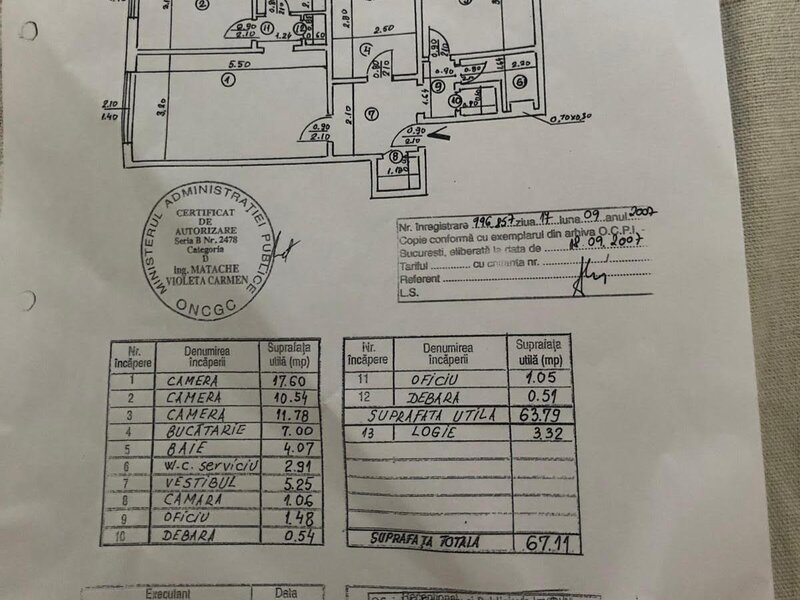 2
0.90
2.10
11
1.24
12
.60
2.80
2.50
4
0.80
2.10
0.90
2.10
5.50
1
3.20
2.10
1.40
0.90
2.10
2.10
7
1.64
0.90
9
10
0.80
2.10
1.64
2.20
6
0.90
0.90
2.10
8
1.18
0,70x0,30
MINISTERUL ADMINISTRAȚIEI PUBLICE
CERTIFICAT
DE
AUTORIZARE
Seria B Nr. 2478
Categoria
D
ing. MATACHE
VIOLETA CARMEN
ONCGC
Nr. înregistrare 996.857 ziua 17 luna 09 anul 2007
Copie conformă cu exemplarul din arhiva O.C.P.I. -
Bucuresti, eliberată la data de 18.09.2007
Tariful ............ cu chitanța nr.
Referent
L.S.
Nr. încăpere Denumirea încăperii Suprafața utilă (mp)
1 CAMERA 17.60
2 CAMERA 10.54
3 CAMERA 11.78
4 BUCĂTARIE 7.00
5 BAIE 4.07
6 W.C. serviciu 2.91
7 VESTIBUL 5.25
8 CAMARA 1.06
9 OFICIU 1.48
10 DEBARA 0.54
Nr. încăpere Denumirea încăperii Suprafața utilă (mp)
11 OFICIU 1.05
12 DEBARA 0.51
SUPRAFATA UTILĂ 63.79
13 LOGIE 3.32
SUPRAFAȚA TOTALĂ 67.11
Executant Data